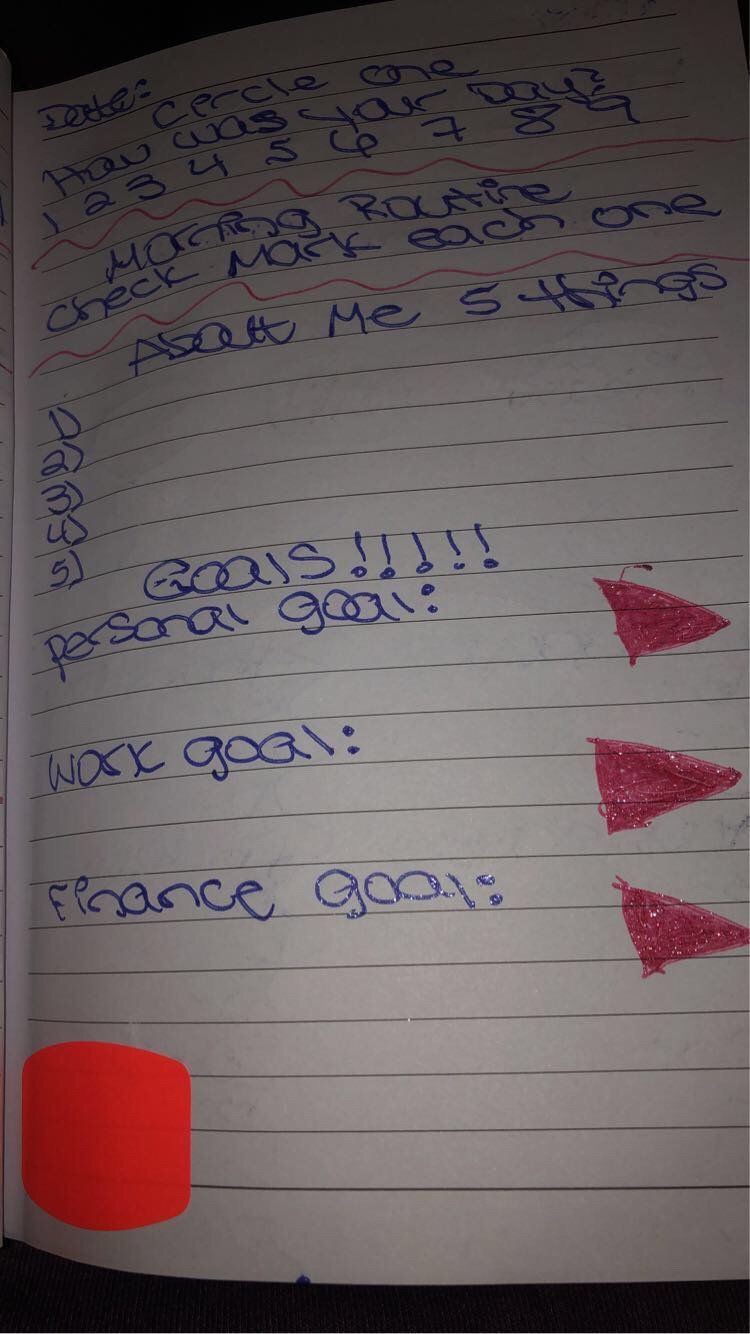 Date:
Circle one
How was your Day?
1 2 3 4 5 6 7 8 9
Morning Routine
check Mark each one
About Me 5 things
1)
2)
3)
4)
5)
Goals!!!!!
personal goal:
work goal:
Finance goal: